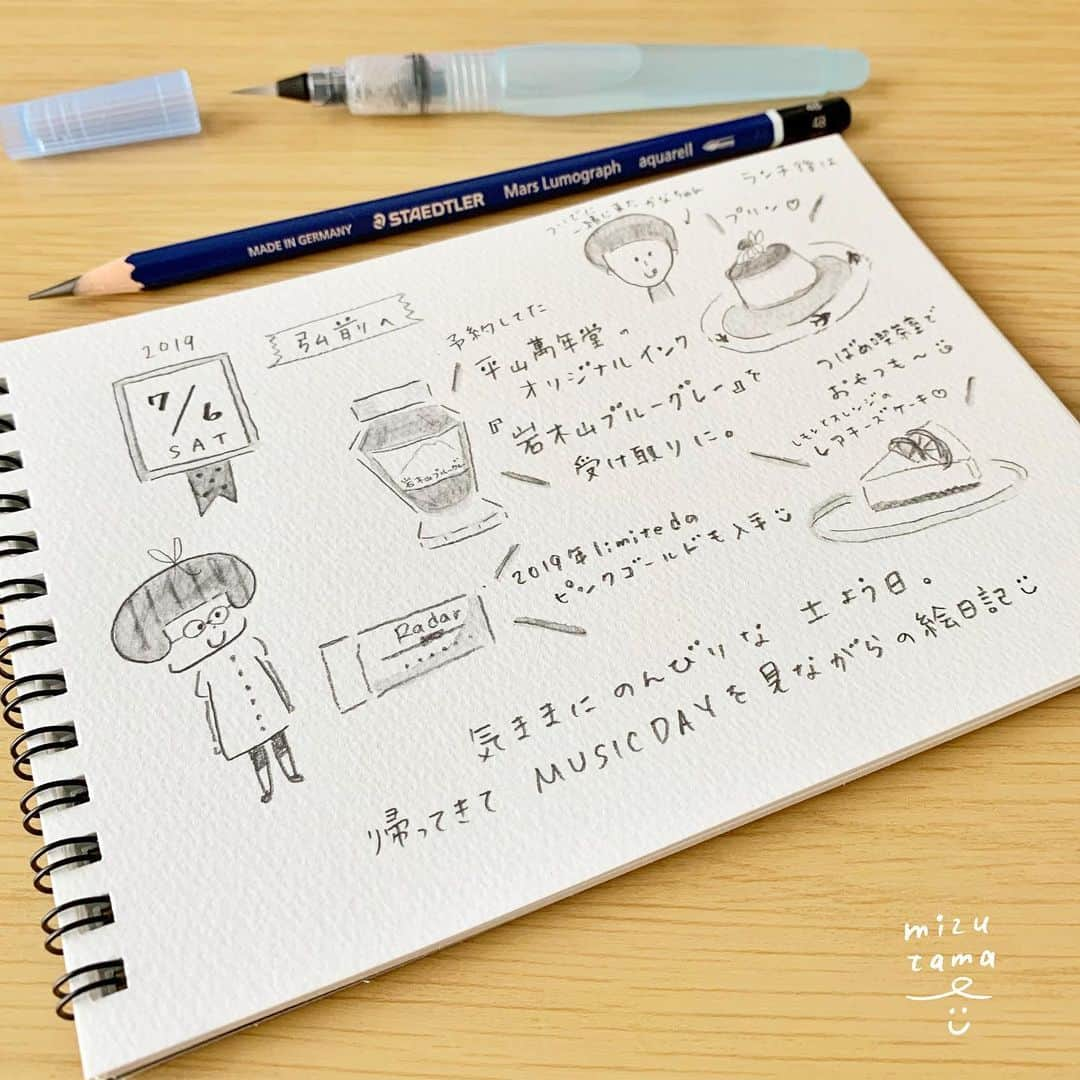 MADE IN GERMANY STAEDTLER Mars Lumograph aquarell 4B
2019
7/6
SAT
弘前りへ
予約してた
平山萬年堂の
オリジナルインク
『岩木山ブルーグレー』を
受け取りに。
岩木山ブルーグレー
一緒にきた かなちゃん
ランチ後は
プリン♡
つばめ喫茶室で
おやつも〜
レモンとオレンジの
レアチーズケーキ♡
2019年limitedの
ピンクゴールドも入手
Radar
気ままにのんびりな 土よう日。
帰ってきて MUSIC DAYを見ながらの絵日記
mizu
tama